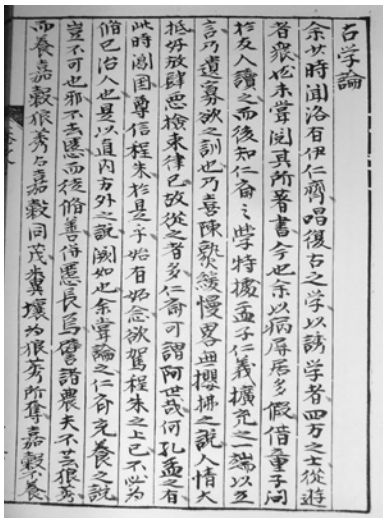 古学論
余少時聞洛有伊仁齊唱復古之学以誘学者四方之士從遊
者衆然未嘗閲其所著書今也余以病屏居多假借童子問
於友人讀之而後知仁斎之学特據孟子仁義擴充之一端以立
言乃遺寡欲之訓也乃喜陳欵緩慢畧無攖拂之説人情大
抵好放肆悪檢束律已故從之者多仁斎可謂阿世哉何孔孟之有
此時闔国尊信程朱於是乎始有妒念欲駕程朱之上已不必為
脩已治人也是以直内方外之説闕如也余嘗論之仁斎充養之説
豈不可也邪不去悪而徒脩善併悪長焉譬諸農夫不芸稂莠
而養嘉穀稂莠与嘉穀同茂糞壤為稂莠所奪嘉穀不養